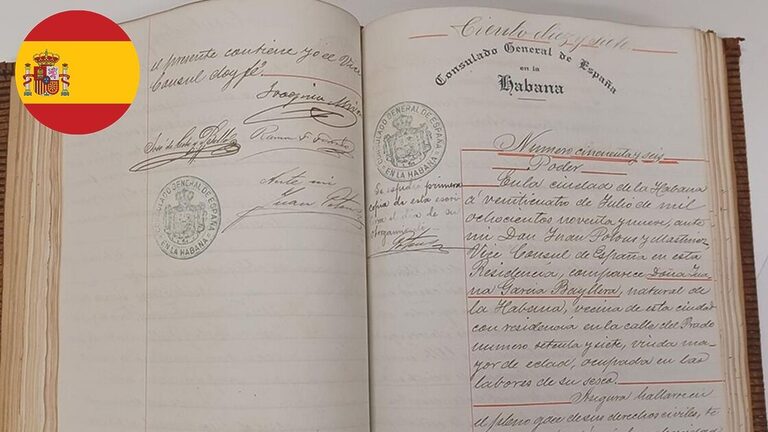 el presente contiene yo el Vice
Consul doy fé.
Joaquin
José de
Ramon F.
Ante mi
Juan Potous
CONSULADO GENERAL DE ESPAÑA
EN LA HABANA
Ciento diez y siete
Consulado General de España
en la
Habana
CONSULADO GENERAL DE ESPAÑA
EN LA HABANA
Se expidió primera
copia de esta escri
el dia de su
otorgamiento
Potous
Numero cincuenta y seis
Poder
En la ciudad de la Habana
á veinticuatro de Julio de mil
ochocientos noventa y nueve, ante
mi Don Juan Potous y Martinez
Vice Consul de España en esta
Residencia, comparece Doña Jua
na Garcia Bayllera, natural de
la Habana, vecina de esta ciudad
con residencia en la calle del Prado
numero setenta y siete, viuda ma-
yor de edad, ocupada en las
labores de su sexo.
Asegura hallarse en
el pleno goce de sus derechos civiles,